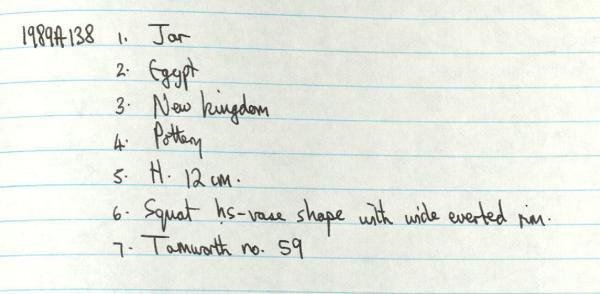 1989A138 1. Jar
2. Egypt
3. New kingdom
4. Pottery
5. H. 12 cm.
6. Squat hs-vase shape with wide everted rim.
7. Tamworth no. 59